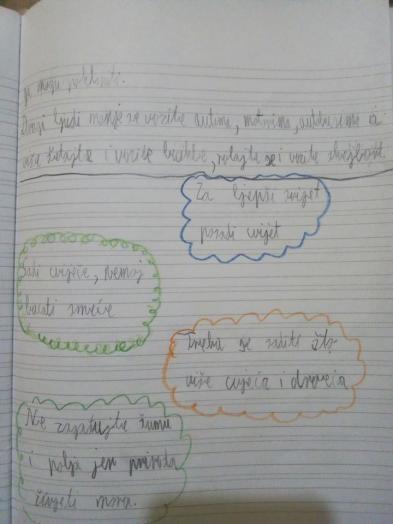 Dragi ljudi manje se vozite autima, motorima, autobusima a
više šetajte i vozite bicikle, rolajte se i vozite
Za ljepši svijet
posadi cvijet
Sadi cvijeće, nemoj
bacati smeće
Treba se saditi što
više cvjeća i drveća
Ne zagađujte šumu
i polja jer priroda
živjeti mora.